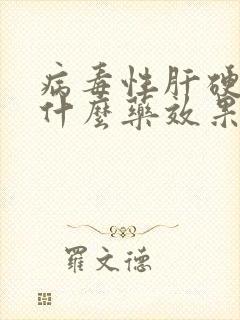 病毒性肝硬
什麼藥效果
羅文德